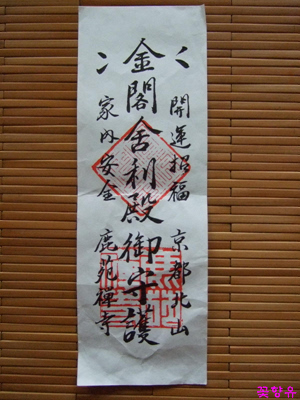 開運招福 京都北山
金閣舎利殿御守護
家内安全 鹿苑禅寺
꽃향유